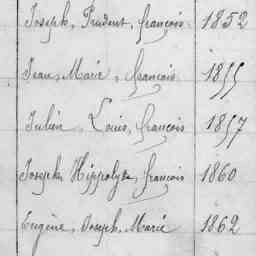 Joseph, Prudent, françois 1852
Jean, Marie, françois 1855
Julien, Louis, françois 1857
Joseph, Hippolyte, françois 1860
Eugène, Joseph, Marie 1862